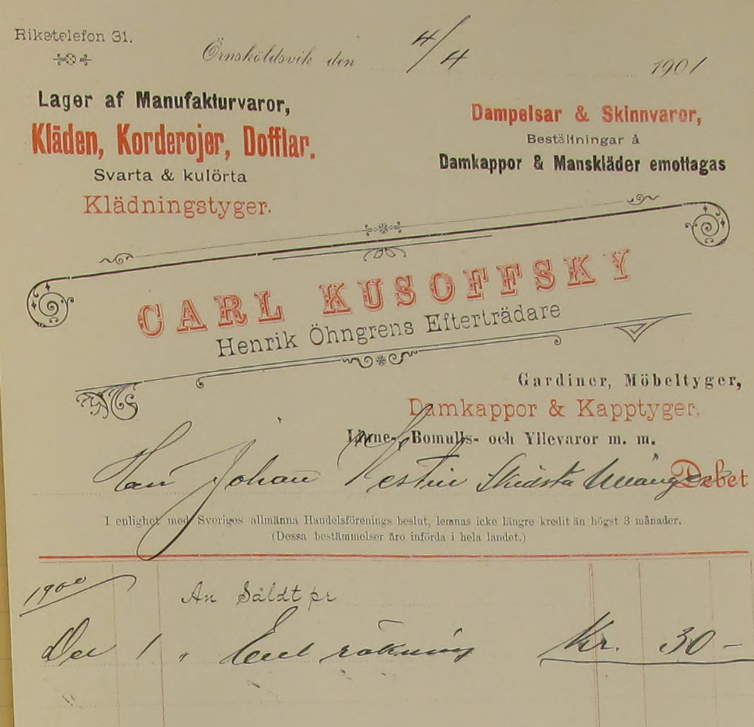 Rikstelefon 31.
Örnsköldsvik den 4/4 1901
Lager af Manufakturvaror,
Kläden, Korderojer, Dofflar.
Svarta & kulörta
Klädningstyger.
Dampelsar & Skinnvaror,
Beställningar å
Damkappor & Manskläder emottagas
CARL KUSOFFSKY
Henrik Öhngrens Efterträdare
Gardiner, Möbeltyger,
Damkappor & Kapptyger.
Linne- Bomulls- och Yllevaror m. m.
Herr Johan Kestin Skidsta Debet
I enlighet med Sveriges allmänna Handelsförenings beslut, lemnas icke längre kredit än högst 3 månader.
(Dessa bestämmelser äro införda i hela landet.)
1900 An Såldt pr
Dec 1 " Enl räkning Kr. 30 -